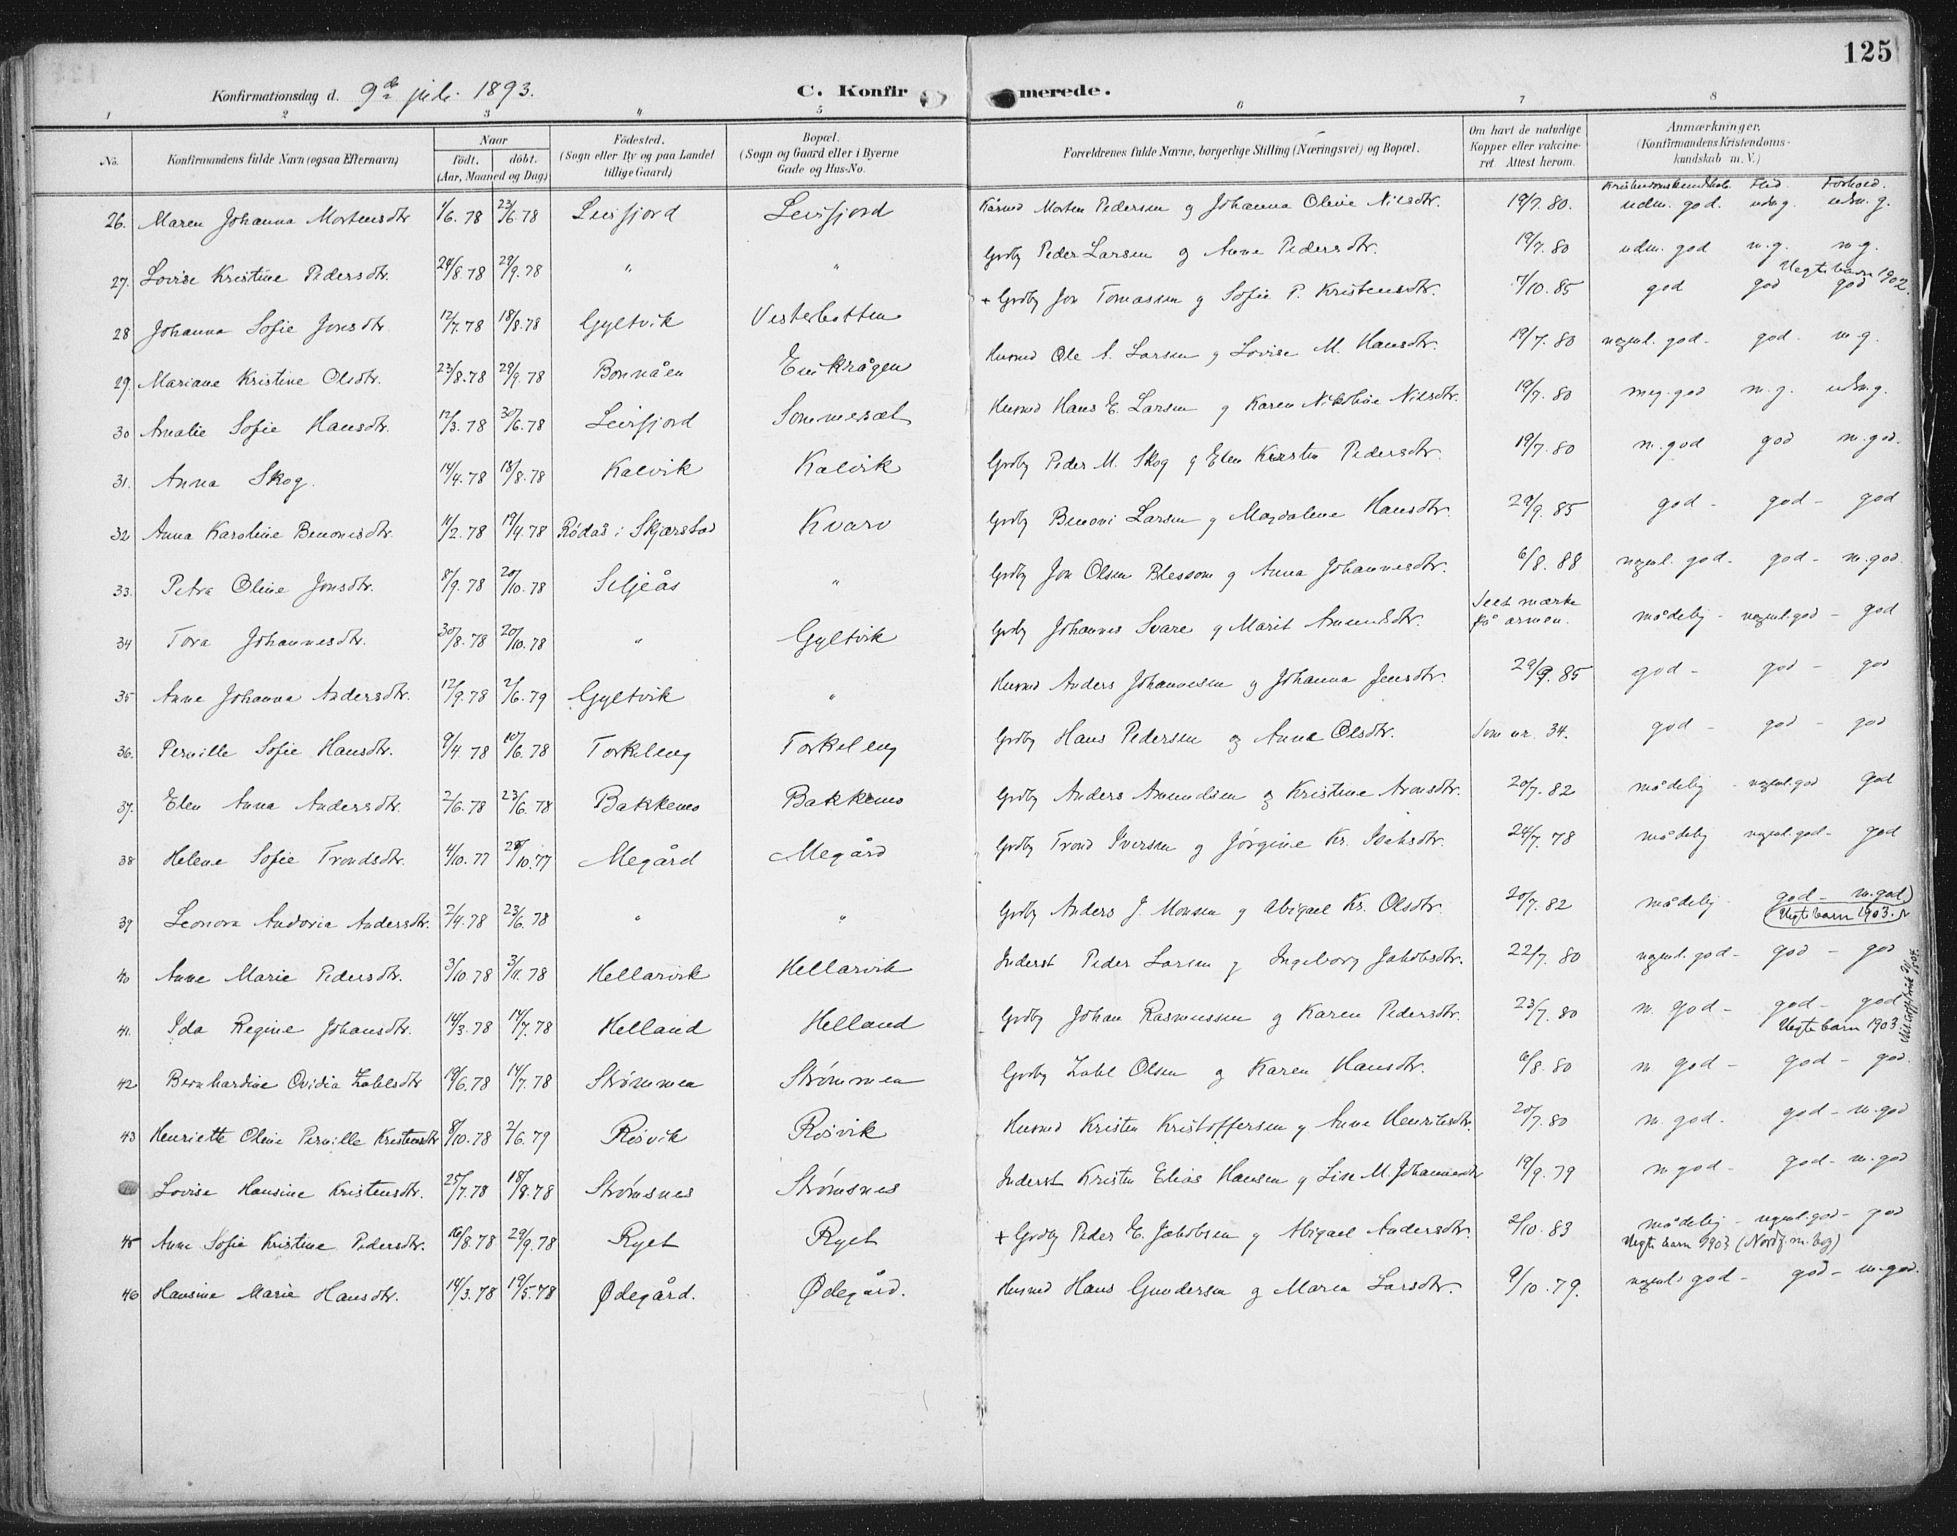 125
Konfirmationsdag d. 9de juli 1893. C. Konfirmerede.
1 2 3 4 5 6 7 8
No. Konfirmandens fulde Navn (ogsaa Efternavn) Naar födt. döbt. (Aar, Maaned og Dag) Födested. (Sogn eller By og paa Landet tillige Gaard) Bopæl. (Sogn og Gaard eller i Byerne Gade og Hus-No. Forældrenes fulde Navne, borgerlige Stilling (Næringsvei) og Bopæl. Om havt de naturlige Kopper eller vakcineret. Attest herom. Anmærkninger. (Konfirmandens Kristendomskundskab m. V.)
Kristendomskundskab. Flid. Forhold.
26. Maren Johanna Mortensdtr 1/6.78 23/6.78 Leirfjord Leirfjord Kårmd Morten Pedersen g Johanna Oline Nilsdtr. 19/7.80. udm. god. udm g. udm. g.
27. Lovise Kristine Pedersdtr. 24/8.78 29/9.78 " " Grdbg Peder Larsen g Anne Pedersdtr. 19/7.80 udm. god m.g. m.g.
28 Johanna Sofie Jonsdtr 12/7.78 18/8.78 Gyltvik Vesterbotten + Grdbg Jon Tomassen g Sofie P. Kristensdtr. 7/10.85 god god god Uegte barn 1902.
29. Mariane Kristine Olsdtr. 23/8.78 29/9.78 Bonnåen Erikkrågen Husmd Ole A. Larsen g Lovise M. Hansdtr. 19/7.80 nogenl. god. god. m.g.
30 Amalie Sofie Hansdtr. 12/3.78 30/6.78 Leirfjord Sommersæt Husmd Hans E. Larsen g Karen Nikoline Nilsdtr. 19/7.80 meg. god m.g. udm.g.
31. Anna Skog. 14/4.78 18/8.78 Kalvik Kalvik Grdbg Peder M. Skog g Elen Kirstin Pedersdtr. 19/7.80 m. god god m. god.
32 Anna Karoline Benonisdtr. 11/2.78 19/4.78 Rødås i Skjærstad Kvarv Grdbg Benoni Larsen g Magdalene Hansdtr. 29/9.85 god - god - god
33. Petra Oline Jonsdtr. 8/9.78 20/10.78 Seljeås " Grdbg Jon Olsen Blessom g Anna Johannesdtr. 6/8.88 nogenl. god. god- m.god.
34 Tora Johannesdtr. 30/8.78 20/10.78 " Gyltvik Grdbg Johannes Svare g Marit Amundsdtr. Seet mærke på armen. mådelig - nogenl. god - god
35 Anne Johanna Andersdtr. 12/9.78 2/6.79 Gyltvik " Husmd Anders Johannesen g Johanna Jensdtr. 29/9.85 god - god - god
36. Pernille Sofie Hansdtr. 9/4.78 10/6.78 Torkeleng Torkeleng Grdbg Hans Pedersen og Anne Olsdtr. Som nr. 34. god - god - god
37. Elen Anna Andersdtr. 2/6.78 23/6.78 Bakkemo Bakkemo Grdbg Anders Amundsen og Kristine Aronsdtr. 20/7.82 mådelig - nogenl. god god
38 Helene Sofie Trondsdtr. 4/10.77 28/10.77 Megård Megård Grdbg Trond Iversen g Jørgine Kr. Isaksdtr. 24/7.78 mådelig nogenl. god- god
39 Leonora Andoria Andersdtr. 2/4.78 23/6.78 " " Grdbg Anders J. Monsen g Abigael Kr. Olsdtr. 20/7.82 mådelig. god - m.god Uegte barn 1903.
40 Anne Marie Pedersdtr. 3/10.78 3/11.78 Hellarvik Hellarvik Inderst Peder Larsen g Ingeborg Jakobsdtr. 22/7.80 nogenl. god- god - god
41. Ida Regine Johansdtr. 14/3.78 14/7.78 Helland Helland Grdbg Johan Rasmussen og Karen Pedersdtr. 23/7.80 m. god - god - god Uegte barn 1903.
42 Bernhardine Ovidia Zahlsdtr 19/6.78 14/7.78 Strømmen Strømmen Grdbg Zahl Olsen og Karen Hansdtr. 6/8.80 m god - god - god.
43 Henriette Oline Pernille Kristensdtr 8/10.78 2/6.79 Røsvik Røsvik Husmd Kristen Kristoffersen g Anne Henriksdtr. 20/7.80 m. god. god - m.god
Lovise Hansine Kristensdtr. 25/7.78 18/8.78 Strømsnes Strømsnes Inderst Kristen Elias Hansen g Lise M. Johannesdtr 19/9.79 m god - god - m.god
45 Anne Sofie Kristine Pedersdtr. 16/8.78 29/9.78 Ryet Ryet + Grdbg Peder E. Jakobsen g Abigael Andersdtr. 2/10.83 mådelig - nogenl. god - god Uegte barn 1903 (Nordf. m. bog)
46 Hansine Marie Hansdtr. 14/3.78 19/5.78 Ødegård. Ødegård. Husmd Hans Gundersen og Maren Larsdtr. 9/10.79. nogenl. god - god - m.god.